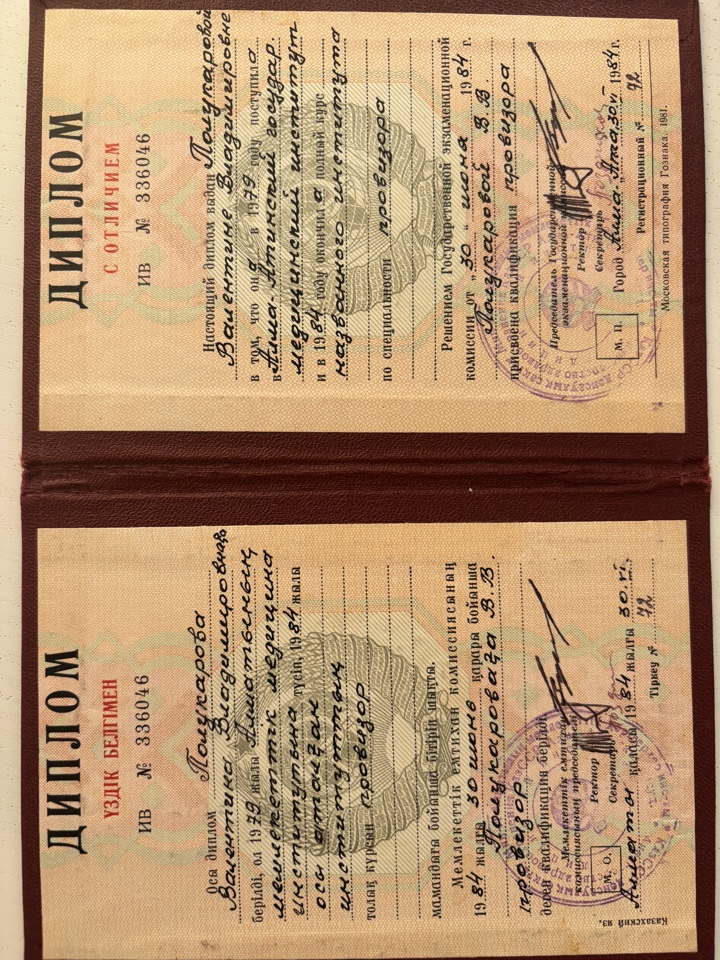 ДИПЛОМ
ҮЗДІК БЕЛГІМЕН
ИВ № 336046
Осы диплом Полукарова
Валентина Владимировнаға
берілді, ол 1979 жылы Алматының
мемлекеттік медицина
институтына түсіп, 1984 жылы
осы аталған
институттың
толық курсын провизор
мамандығы бойынша бітіріп шықты.
Мемлекеттік емтихан комиссиясының
1984 жылғы 30 июнь қарары бойынша
Полукароваға В.В.
провизор
деген квалификация берілді
Мемлекеттік емтихан
комиссиясының председателі
Ректор
Секретарь
М. О.
Алматы қаласы 1984 жылғы 30.VI.
Тіркеу № 72
Казахский яз.
ДИПЛОМ
С ОТЛИЧИЕМ
ИВ № 336046
Настоящий диплом выдан Полукаровой
Валентине Владимировне
в том, что она в 1979 году поступила
в Алма-Атинский государ
медицинский институт
и в 1984 году окончила полный курс
названного института
по специальности провизора
Решением Государственной экзаменационной
комиссии от „30“ июня 1984 г.
Полукаровой В.В.
присвоена квалификация провизора
Председатель Государственной
экзаменационной комиссии
Ректор
Секретарь
М. П.
Город Алма-Ата, 30.VI 1984 г.
Регистрационный № 72
Московская типография Гознака. 1981.